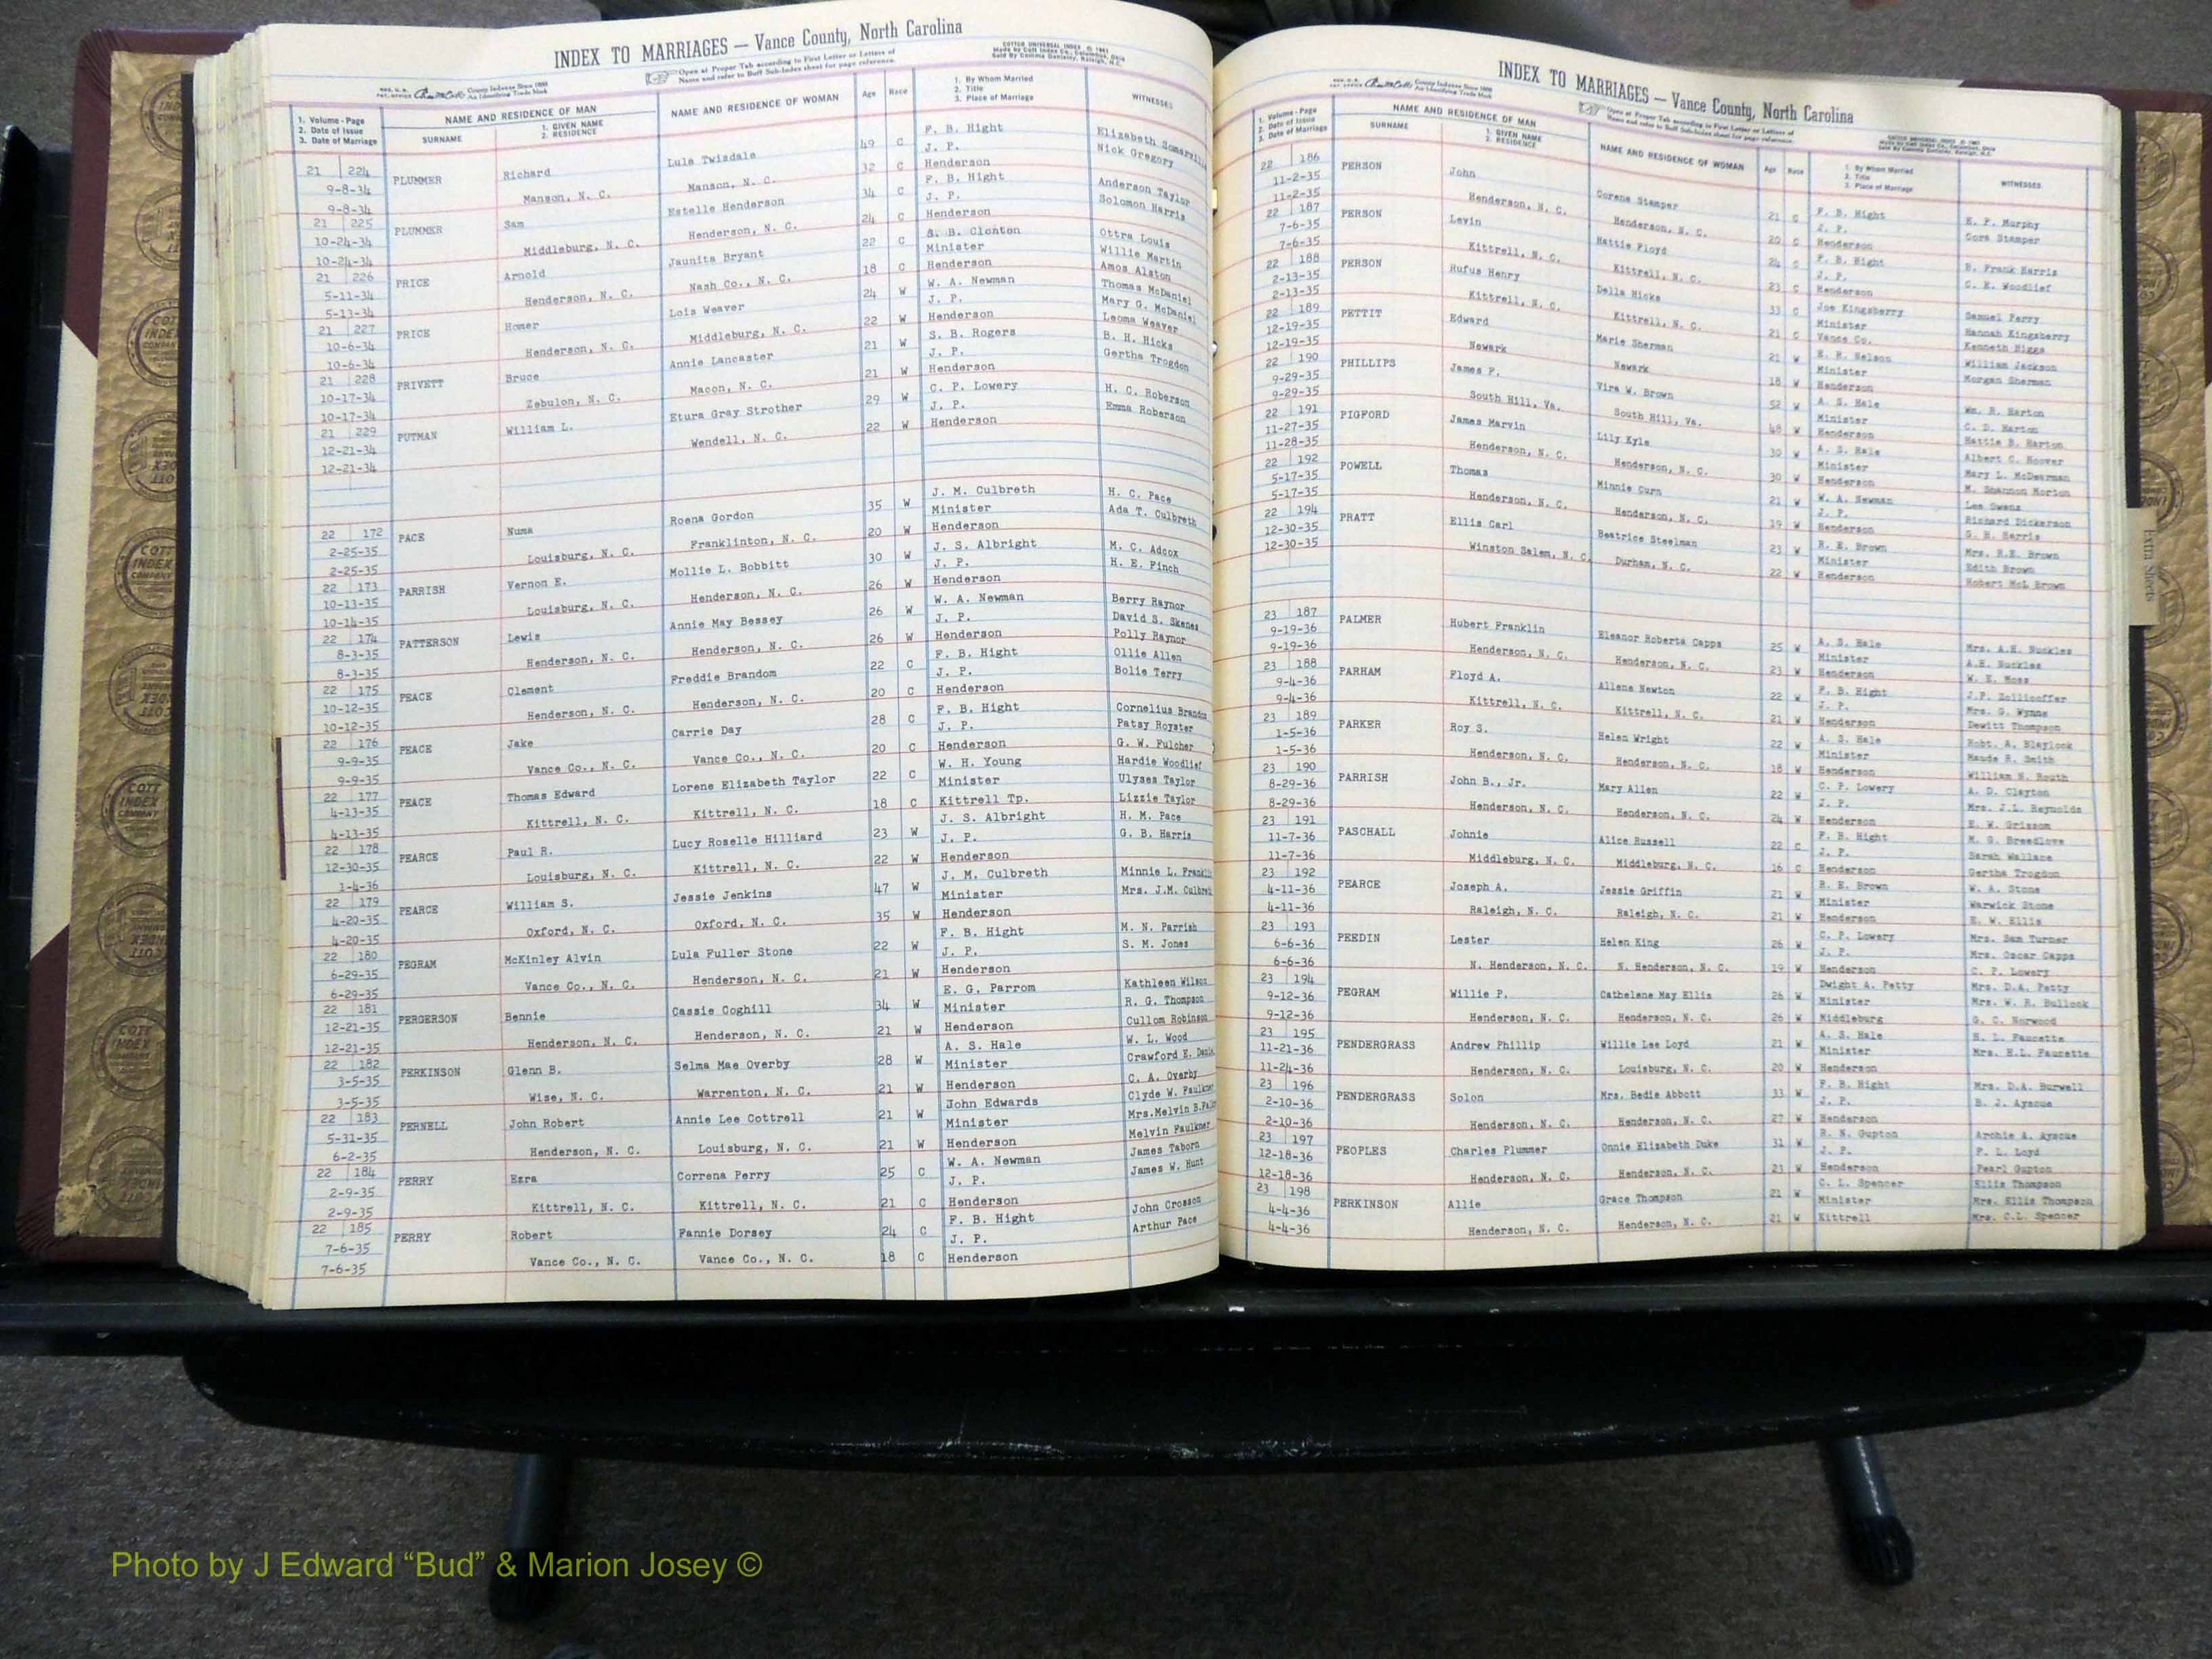 INDEX TO MARRIAGES — Vance County, North Carolina
Open at Proper Tab according to First Letter or Letters of
Name and refer to Buff Sub-Index sheet for page reference.
1. Volume - Page
2. Date of Issue
3. Date of Marriage
NAME AND RESIDENCE OF MAN
SURNAME
1. GIVEN NAME
2. RESIDENCE
NAME AND RESIDENCE OF WOMAN
Age
Race
1. By Whom Married
2. Title
3. Place of Marriage
WITNESSES
21 224 PLUMMER Richard Lula Twisdale 49 C F. B. Hight Elizabeth
9-8-34 Manson, N. C. Manson, N. C. 32 C J. P. Nick Gregory
9-8-34 Henderson
21 225 PLUMMER Sam Estelle Henderson 34 C F. B. Hight Anderson Taylor
10-24-34 Middleburg, N. C. Henderson, N. C. 24 C J. P. Solomon Harris
10-24-34 Henderson
21 226 PRICE Arnold Jaunita Bryant 22 C S. B. Clanton Ottra Louis
5-11-34 Henderson, N. C. Nash Co., N. C. 18 C Minister Willie Martin
5-13-34 Henderson Amos Alston
21 227 PRICE Homer Lois Weaver 24 W W. A. Newman Thomas McDaniel
10-6-34 Henderson, N. C. Middleburg, N. C. 22 W J. P. Mary G. McDaniel
10-6-34 Henderson Leoma Weaver
21 228 PRIVETT Bruce Annie Lancaster 21 W S. B. Rogers B. H. Hicks
10-17-34 Zebulon, N. C. Macon, N. C. 21 W J. P. Gertha Trogdon
10-17-34 Henderson
21 229 PUTMAN William L. Etura Gray Strother 29 W C. P. Lowery H. C. Roberson
12-21-34 Wendell, N. C. 22 W J. P. Emma Roberson
12-21-34 Henderson
22 172 PACE Numa Roena Gordon 35 W J. M. Culbreth H. C. Pace
2-25-35 Louisburg, N. C. Franklinton, N. C. 20 W Minister Ada T. Culbreth
2-25-35 Henderson
22 173 PARRISH Vernon E. Mollie L. Bobbitt 30 W J. S. Albright M. C. Adcox
10-13-35 Louisburg, N. C. Henderson, N. C. 26 W J. P. H. E. Finch
10-14-35 Henderson
22 174 PATTERSON Lewis Annie May Bessey 26 W W. A. Newman Berry Raynor
8-3-35 Henderson, N. C. Henderson, N. C. 26 W J. P. David S. Skenes
8-3-35 Henderson Polly Raynor
22 175 PEACE Clement Freddie Brandom 22 C F. B. Hight Ollie Allen
10-12-35 Henderson, N. C. Henderson, N. C. 20 C J. P. Bolie Terry
10-12-35 Henderson
22 176 PEACE Jake Carrie Day 28 C F. B. Hight Cornelius
9-9-35 Vance Co., N. C. Vance Co., N. C. 20 C J. P. Patsy Royster
9-9-35 Henderson G. W. Fulcher
22 177 PEACE Thomas Edward Lorene Elizabeth Taylor 22 C W. H. Young Hardie Woodlief
4-13-35 Kittrell, N. C. Kittrell, N. C. 18 C Minister Ulyses Taylor
4-13-35 Kittrell Tp. Lizzie Taylor
22 178 PEARCE Paul R. Lucy Roselle Hilliard 23 W J. S. Albright H. M. Pace
12-30-35 Louisburg, N. C. Kittrell, N. C. 22 W J. P. G. B. Harris
1-4-36 Henderson
22 179 PEARCE William S. Jessie Jenkins 47 W J. M. Culbreth Minnie L.
4-20-35 Oxford, N. C. Oxford, N. C. 35 W Minister Mrs. J.M.
4-20-35 Henderson
22 180 PEGRAM McKinley Alvin Lula Fuller Stone 22 W F. B. Hight M. N. Parrish
6-29-35 Vance Co., N. C. Henderson, N. C. 21 W J. P. S. M. Jones
6-29-35 Henderson
22 181 PERGERSON Bennie Cassie Coghill 34 W E. G. Parrom Kathleen Wilson
12-21-35 Henderson, N. C. Henderson, N. C. 21 W Minister R. G. Thompson
12-21-35 Henderson Cullom Robinson
22 182 PERKINSON Glenn B. Selma Mae Overby 28 W A. S. Hale W. L. Wood
3-5-35 Wise, N. C. Warrenton, N. C. 21 W Minister Crawford E.
3-5-35 Henderson C. A. Overby
22 183 PERNELL John Robert Annie Lee Cottrell 21 W John Edwards Clyde W.
5-31-35 Henderson, N. C. Louisburg, N. C. 21 W Minister Mrs.Melvin
6-2-35 Henderson Melvin Faulkner
22 184 PERRY Ezra Correna Perry 25 C W. A. Newman James Taborn
2-9-35 Kittrell, N. C. Kittrell, N. C. 21 C J. P. James W. Hunt
2-9-35 Henderson
22 185 PERRY Robert Fannie Dorsey 24 C F. B. Hight John Crosson
7-6-35 Vance Co., N. C. Vance Co., N. C. 18 C J. P. Arthur Pace
7-6-35 Henderson
INDEX TO MARRIAGES — Vance County, North Carolina
Open at Proper Tab according to First Letter or Letters of
Name and refer to Buff Sub-Index sheet for page reference.
1. Volume - Page
2. Date of Issue
3. Date of Marriage
NAME AND RESIDENCE OF MAN
SURNAME
1. GIVEN NAME
2. RESIDENCE
NAME AND RESIDENCE OF WOMAN
Age
Race
1. By Whom Married
2. Title
3. Place of Marriage
WITNESSES
22 186 PERSON John Corene Stamper 21 C F. B. Hight E. P. Murphy
11-2-35 Henderson, N. C. Henderson, N. C. 20 C J. P. Cora Stamper
11-2-35 Henderson
22 187 PERSON Levin Hattie Floyd 24 C F. B. Hight B. Frank Harris
7-6-35 Kittrell, N. C. Kittrell, N. C. 23 C J. P. C. E. Woodlief
7-6-35 Henderson
22 188 PERSON Rufus Henry Della Hicks 33 C Joe Kingsberry Samuel Perry
2-13-35 Kittrell, N. C. Kittrell, N. C. 21 C Minister Hannah Kingsberry
2-13-35 Vance Co. Kenneth Biggs
22 189 PETTIT Edward Marie Sherman 21 W E. R. Nelson William Jackson
12-19-35 Newark Newark 18 W Minister Morgan Sherman
12-19-35 Henderson
22 190 PHILLIPS James P. Vira W. Brown 52 W A. S. Hale Wm. R. Harton
9-29-35 South Hill, Va. South Hill, Va. 48 W Minister C. D. Harton
9-29-35 Henderson Hattie B. Harton
22 191 PIGFORD James Marvin Lily Kyle 30 W A. S. Hale Albert C. Hoover
11-27-35 Henderson, N. C. Henderson, N. C. 30 W Minister Mary L. McDearman
11-28-35 Henderson M. Shannon Morton
22 192 POWELL Thomas Minnie Curn 21 W W. A. Newman Lee Owens
5-17-35 Henderson, N. C. Henderson, N. C. 19 W J. P. Richard Dickerson
5-17-35 Henderson G. H. Harris
22 194 PRATT Ellis Carl Beatrice Steelman 23 W R. E. Brown Mrs. R.E. Brown
12-30-35 Winston Salem, N. C. Durham, N. C. 22 W Minister Edith Brown
12-30-35 Henderson Robert McL Brown
23 187 PALMER Hubert Franklin Eleanor Roberta Capps 25 W A. S. Hale Mrs. A.H. Nuckles
9-19-36 Henderson, N. C. Henderson, N. C. 23 W Minister A.H. Nuckles
9-19-36 Henderson W. E. Moss
23 188 PARHAM Floyd A. Allene Newton 22 W F. B. Hight J.P. Zollicoffer
9-4-36 Kittrell, N. C. Kittrell, N. C. 21 W J. P. Mrs. G. Wynne
9-4-36 Henderson Dewitt Thompson
23 189 PARKER Roy S. Helen Wright 22 W A. S. Hale Robt. A. Blaylock
1-5-36 Henderson, N. C. Henderson, N. C. 18 W Minister Maude R. Smith
1-5-36 Henderson William N. Routh
23 190 PARRISH John B., Jr. Mary Allen 22 W C. P. Lowery A. D. Clayton
8-29-36 Henderson, N. C. Henderson, N. C. 24 W J. P. Mrs. J.L. Reynolds
8-29-36 Henderson E. W. Grissom
23 191 PASCHALL Johnie Alice Russell 22 C F. B. Hight M. G. Breedlove
11-7-36 Middleburg, N. C. Middleburg, N. C. 16 C J. P. Sarah Wallace
11-7-36 Henderson Gertha Trogdon
23 192 PEARCE Joseph A. Jessie Griffin 21 W R. E. Brown W. A. Stone
4-11-36 Raleigh, N. C. Raleigh, N. C. 21 W Minister Warwick Stone
4-11-36 Henderson E. W. Ellis
23 193 PEEDIN Lester Helen King 26 W C. P. Lowery Mrs. Sam Turner
6-6-36 N. Henderson, N. C. N. Henderson, N. C. 19 W J. P. Mrs. Oscar Capps
6-6-36 Henderson C. P. Lowery
23 194 PEGRAM Willie P. Cathelene May Ellis 26 W Dwight A. Petty Mrs. D.A. Petty
9-12-36 Henderson, N. C. Henderson, N. C. 26 W Minister Mrs. W. R. Bullock
9-12-36 Middleburg G. C. Norwood
23 195 PENDERGRASS Andrew Phillip Willie Lee Loyd 21 W A. S. Hale H. L. Faucette
11-21-36 Henderson, N. C. Louisburg, N. C. 20 W Minister Mrs. H.L. Faucette
11-24-36 Henderson
23 196 PENDERGRASS Solon Mrs. Bedie Abbott 33 W F. B. Hight Mrs. D.A. Burwell
2-10-36 Henderson, N. C. Henderson, N. C. 27 W J. P. B. J. Ayscue
2-10-36 Henderson
23 197 PEOPLES Charles Plummer Onnie Elizabeth Duke 31 W R. N. Gupton Archie A. Ayscue
12-18-36 Henderson, N. C. Henderson, N. C. 23 W J. P. P. L. Loyd
12-18-36 Henderson Pearl Gupton
23 198 PERKINSON Allie Grace Thompson 21 W C. L. Spencer Ellis Thompson
4-4-36 Henderson, N. C. Henderson, N. C. 21 W Minister Mrs. Ellis Thompson
4-4-36 Kittrell Mrs. C.L. Spencer
Extra Sheets
COTT INDEX COMPANY
Photo by J Edward “Bud” & Marion Josey ©